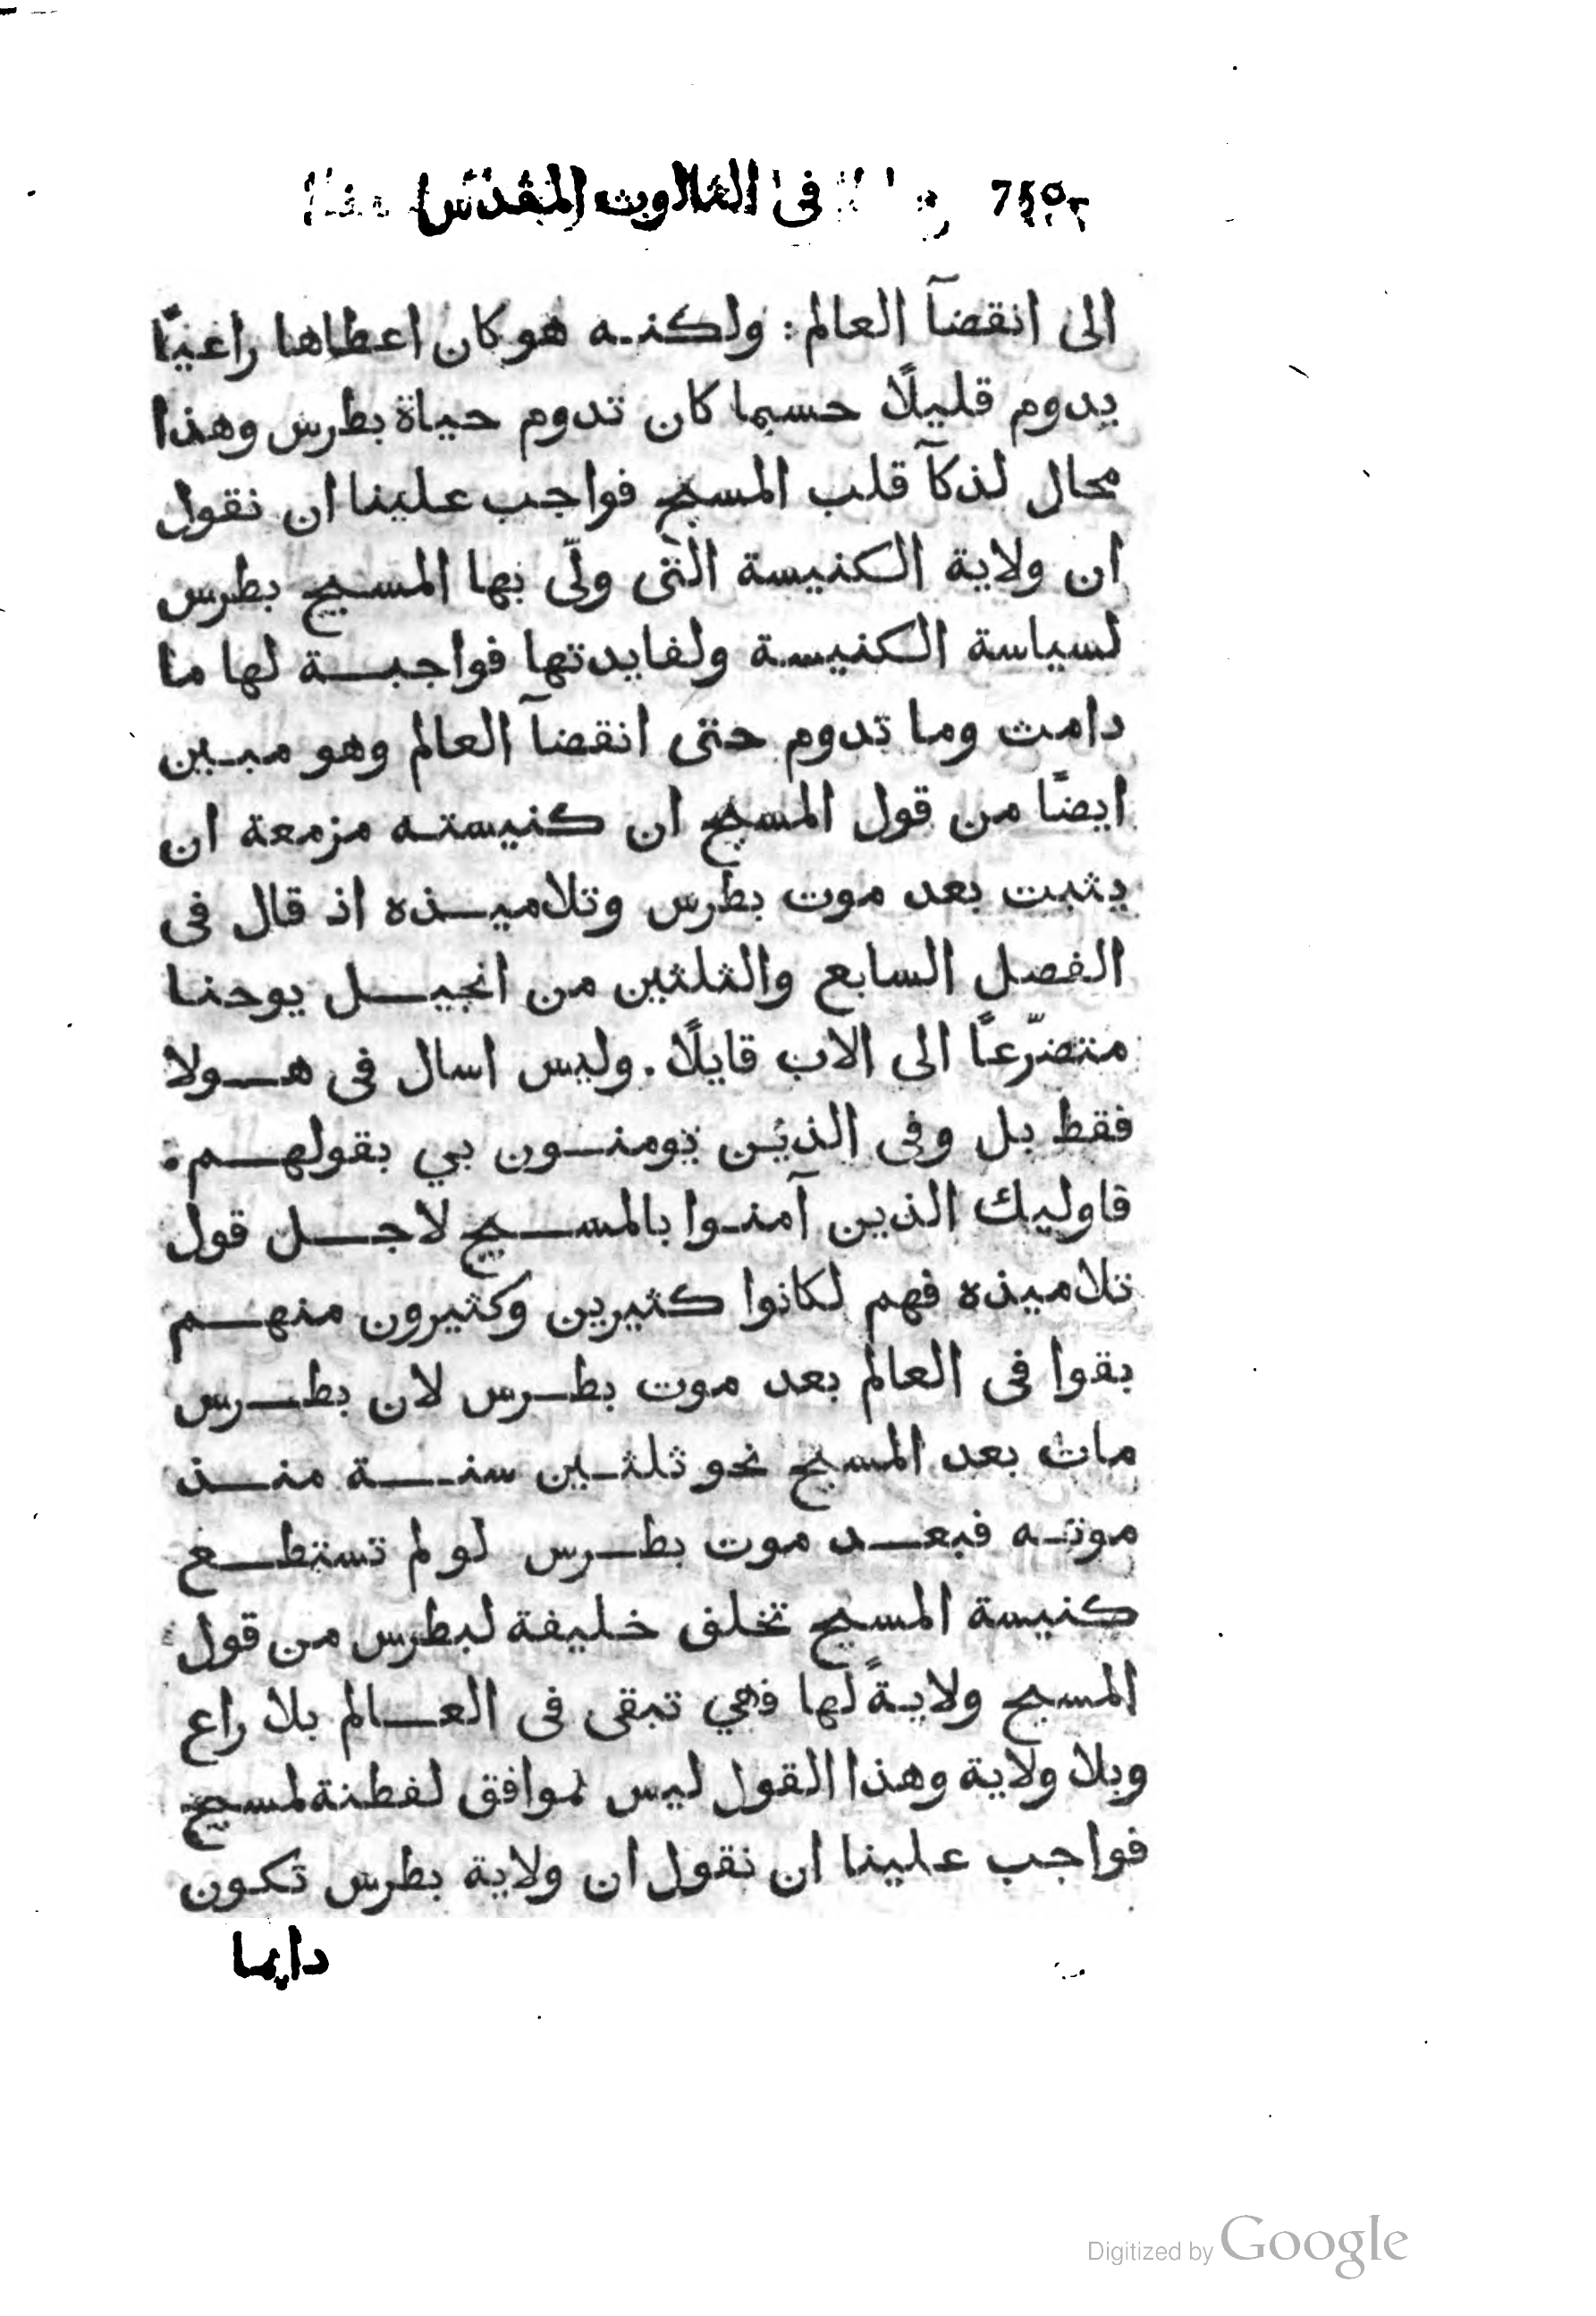 فى الثالوث المقدّس
الى انقضآ العالم: ولكنه هو كان اعطاها راعيًا
يدوم قليلًا حسبما كان تدوم حياة بطرس وهذا
محال لذكآ قلب المسيح فواجب علينا ان نقول
ان ولاية الكنيسة التى ولّى بها المسيح بطرس
لسياسة الكنيسة ولفايدتها فواجبة لها ما
دامت وما تدوم حتى انقضآ العالم وهو مبين
ايضًا من قول المسيح ان كنيسته مزمعة ان
يثبت بعد موت بطرس وتلاميذه اذ قال فى
الفصل السابع والثلثين من انجيل يوحنا
متضرّعًا الى الاب قايلًا. وليس اسال فى هولا
فقط بل وفى الذين يومنون بي بقولهم:
فاوليك الذين آمنوا بالمسيح لاجل قول
تلاميذه فهم لكانوا كثيرين وكثيرون منهم
بقوا فى العالم بعد موت بطرس لان بطرس
مات بعد المسيح نحو ثلثين سنة منذ
موته فبعد موت بطرس لو لم تستطع
كنيسة المسيح تخلف خليفة لبطرس من قول
المسيح ولايةً لها فهي تبقى فى العالم بلا راع
وبلا ولاية وهذا القول ليس بموافق لفطنة لمسيح
فواجب علينا ان نقول ان ولاية بطرس تكون
دايما
Digitized by Google